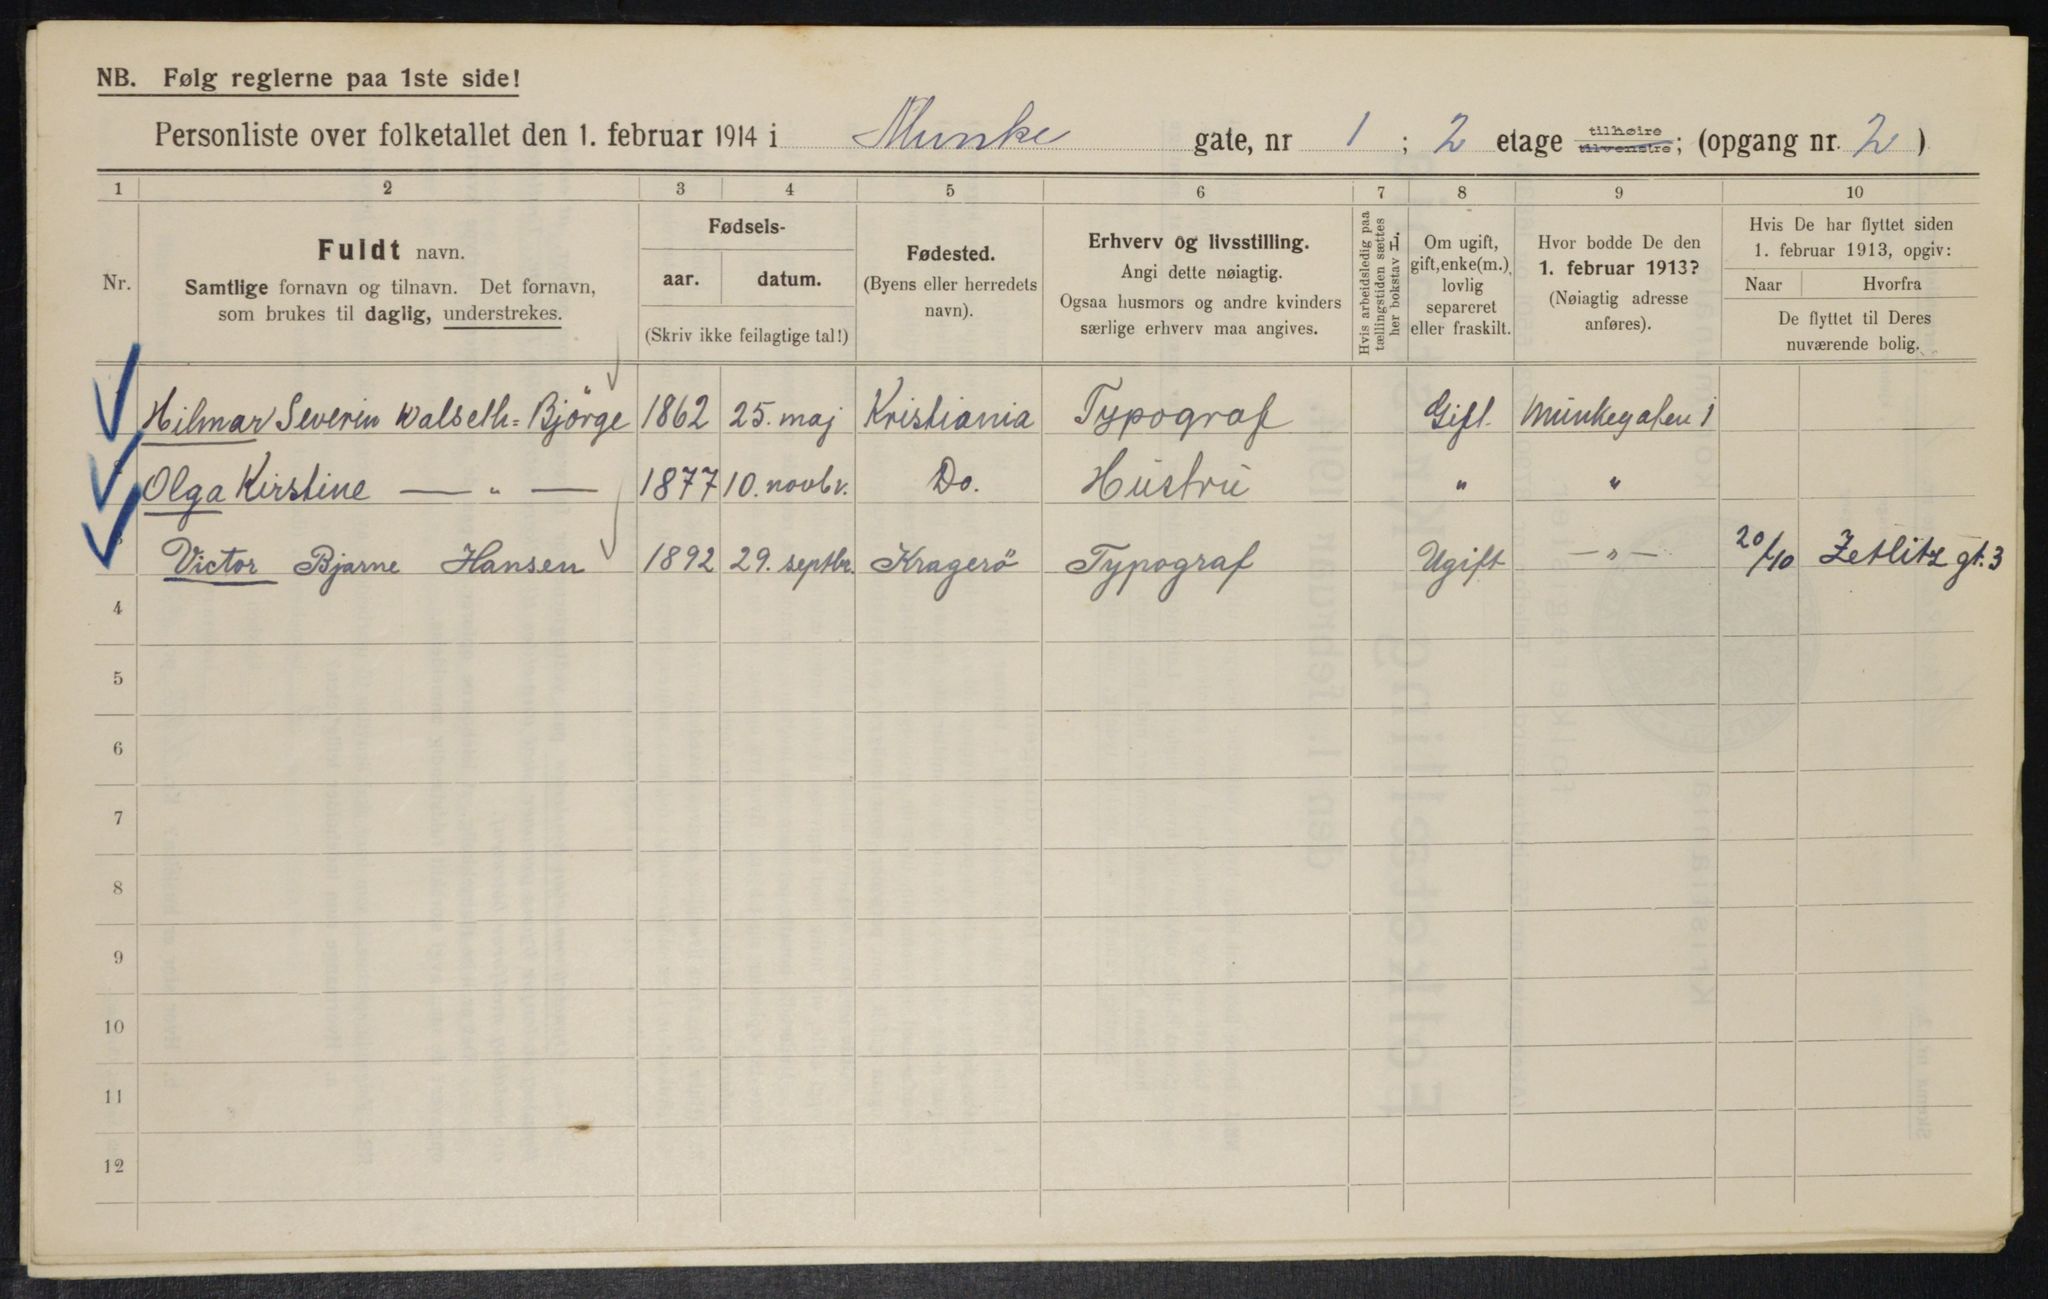 NB. Følg reglerne paa 1ste side!
Personliste over folketallet den 1. februar 1914 i Munke gate, nr 1 ; 2 etage tilhøire tilvenstre; (opgang nr. 2)
1 2 3 4 5 6 7 8 9 10
Nr.
Fuldt navn.
Samtlige fornavn og tilnavn. Det fornavn,
som brukes til daglig, understrekes.
Fødsels-
aar. datum.
(Skriv ikke feilagtige tal!)
Fødested.
(Byens eller herredets
navn).
Erhverv og livsstilling.
Angi dette nøiagtig.
Ogsaa husmors og andre kvinders
særlige erhverv maa angives.
Hvis arbeidsledig paa
tællingstiden sættes
her bokstav L.
Om ugift,
gift, enke(m.),
lovlig
separeret
eller fraskilt.
Hvor bodde De den
1. februar 1913?
(Nøiagtig adresse
anføres).
Hvis De har flyttet siden
1. februar 1913, opgiv:
Naar Hvorfra
De flyttet til Deres
nuværende bolig.
Hilmar Severin Walseth=Bjørge 1862 25. maj Kristiania Typograf Gift. Munkegaten 1
Olga Kirstine — „ — 1877 10. novbr. Do. Hustru „ „
Victor Bjarne Hansen 1892 29. septbr. Kragerö Typograf Ugift — „ — 20/10 Zetlitz gt. 3
4
5
6
7
8
9
10
11
12